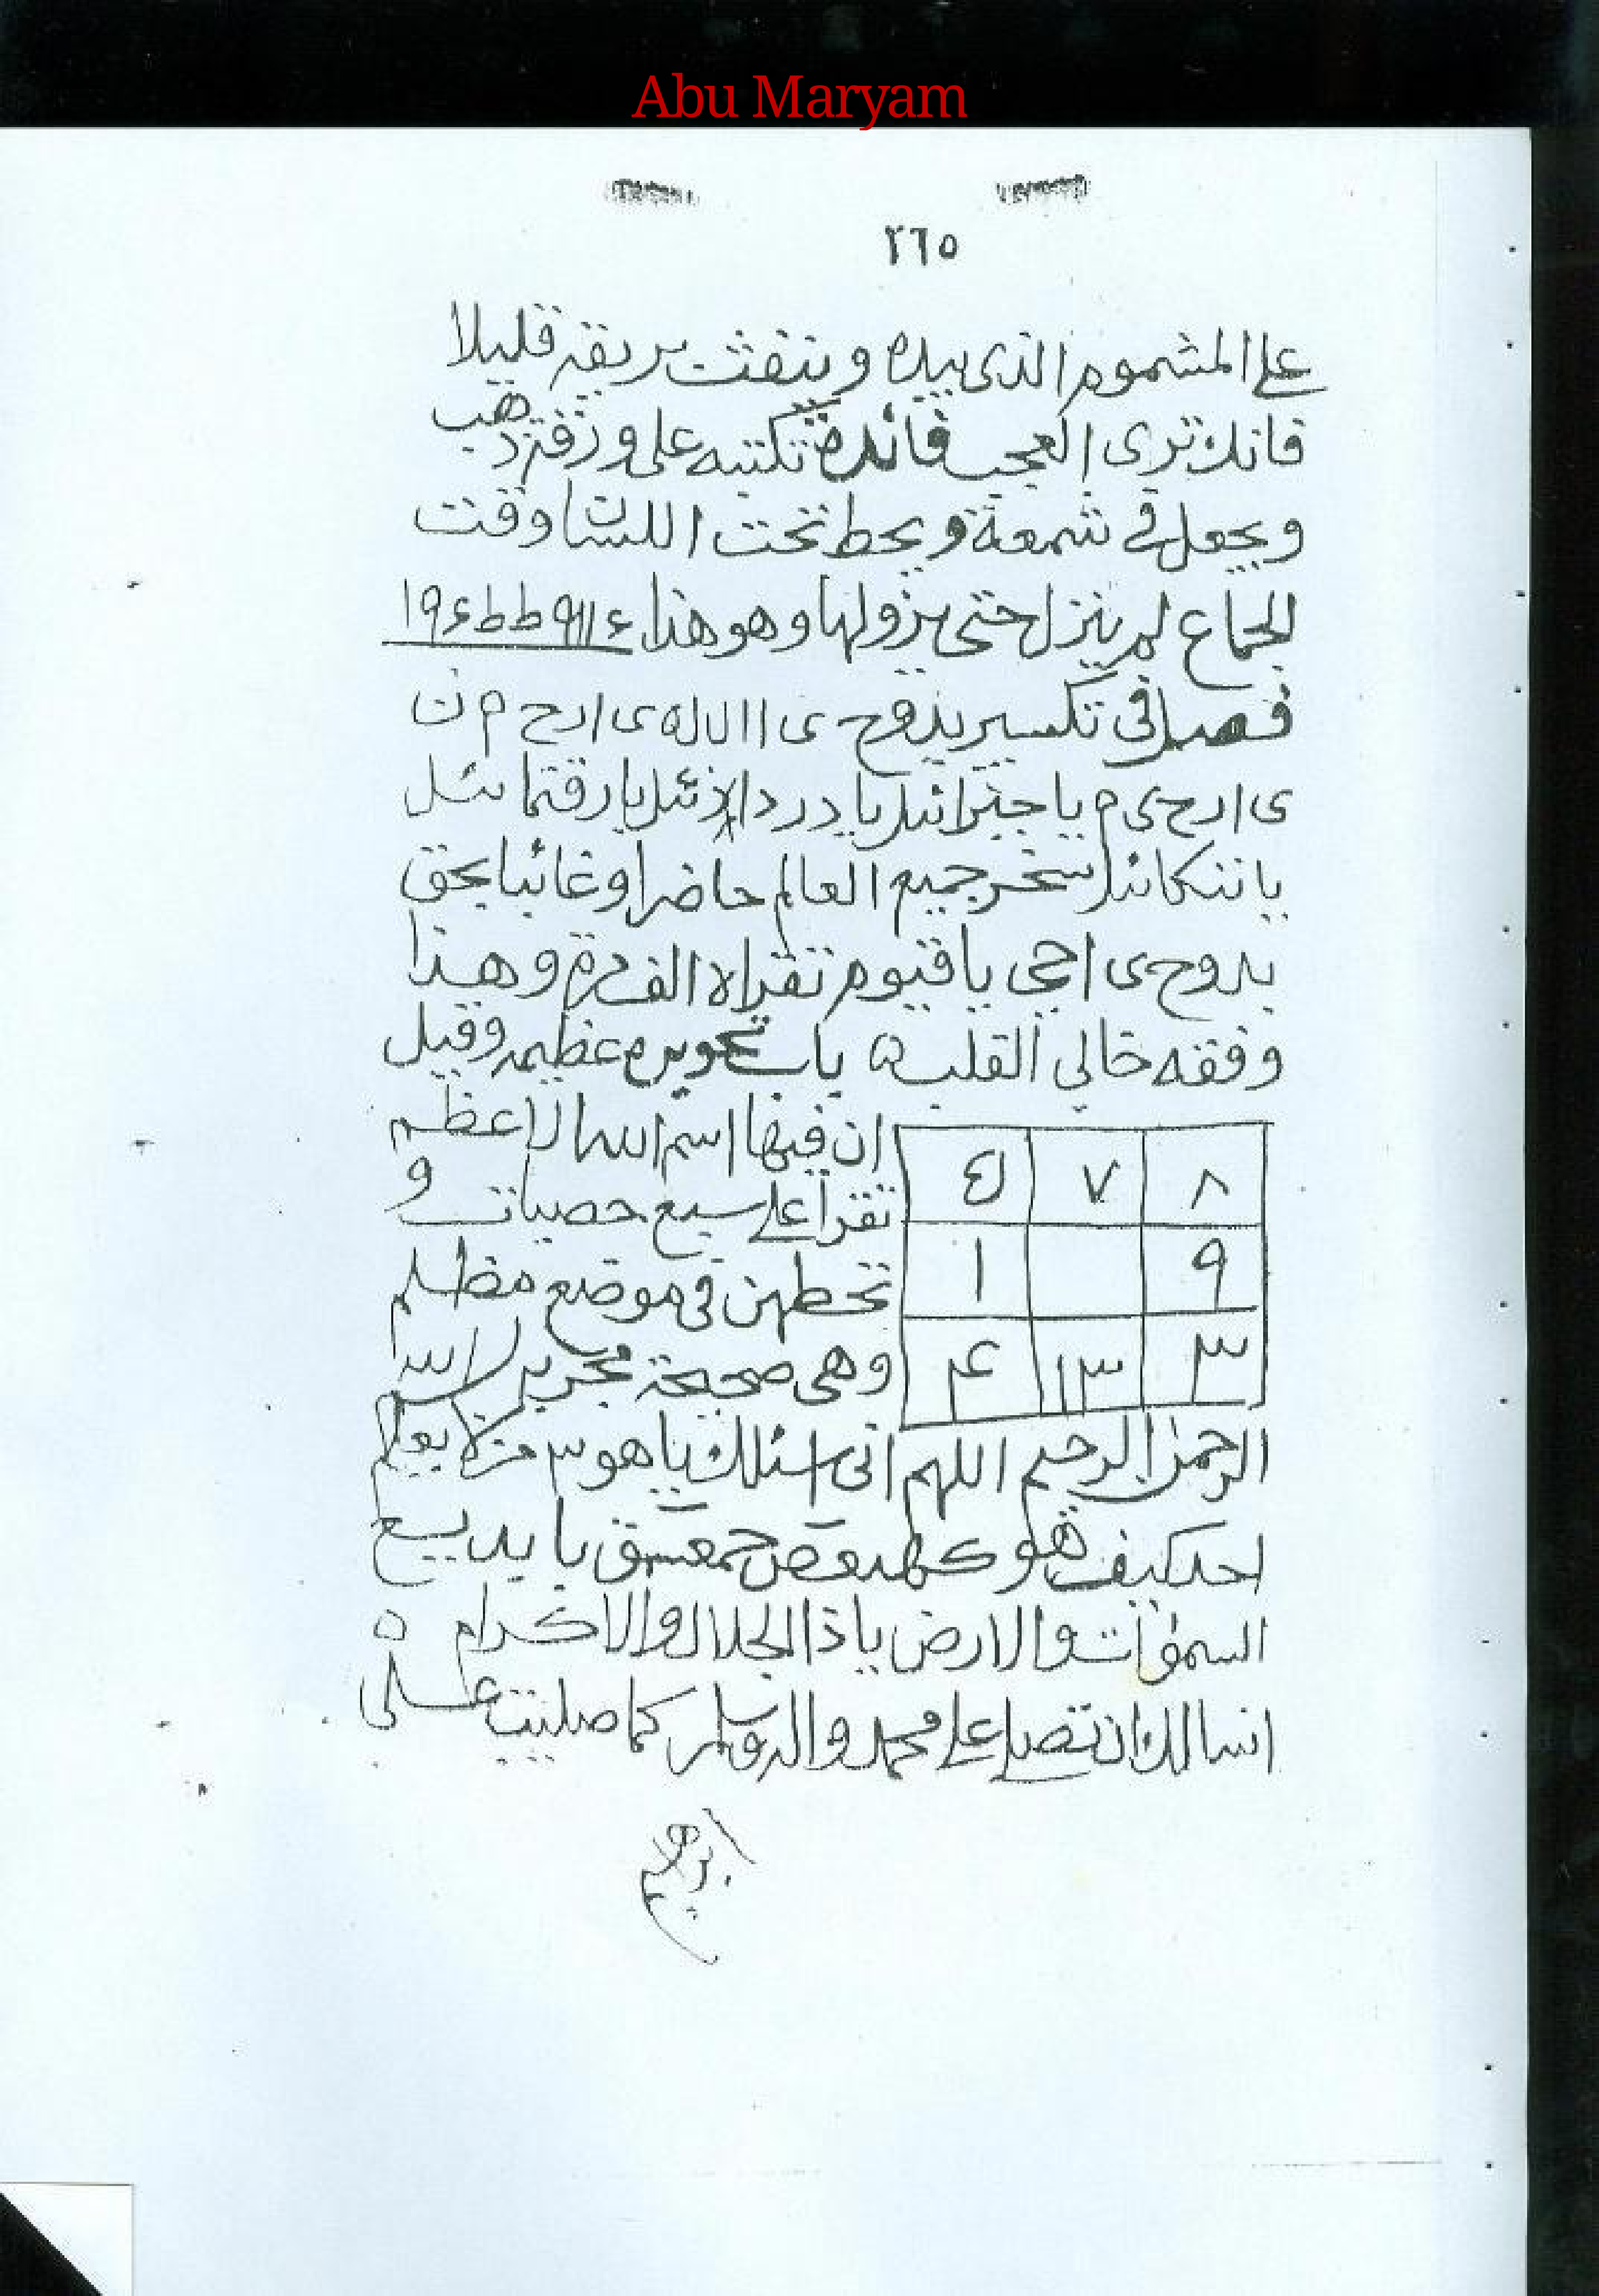 Abu Maryam
٢٦٥
على المشموم الذي بيده وينفث بريقه قليلا
فانك ترى العجب فائدة تكتبه على ورقة ذهب
ويجعل في شمعة ويحط تحت اللسان وقت
الجماع لم ينزل حتى يزولها وهو هذا
فصل في تكسير بدوح ى ا ا ل ل ه ى ا ر ح م ن
ى ا ر ح ى م يا جبرائيل يا دردائيل يا رفتمائيل
يا تنكائيل سخر جميع العالم حاضرا وغائبا بحق
بدوح ى احى يا قيوم تقراه الف مرة وهذا
وفقه خالي القلب ه باب عظيمه وقيل
ان فيها اسم الله الاعظم
تقرأ على سبع حصيات و
تحطهن في موضع مظلم
وهي صحيحة مجربه بسم الله
٨ ٧ ٤
٩ ١
٣ ١٣ ۴
الرحمن الرحيم اللهم انى اسئلك يا هو ٣ من لا يعلم
احد كيف هو كهيعص حمعسق يا بديع
السموات والارض يا ذا الجلال والاكرام ه
اسالك ان تصلى على محمد واله وسلم كما صليت على
ابرهيم